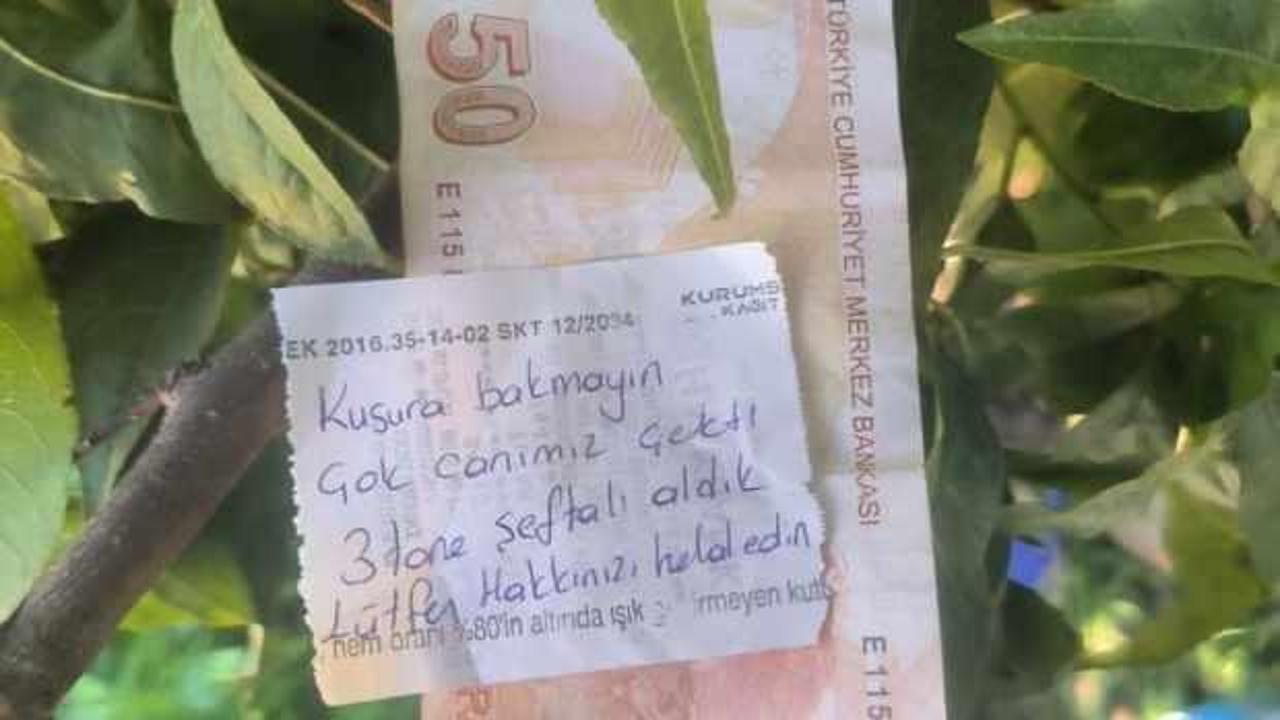 50
E 115
TÜRKİYE CUMHURİYET MERKEZ BANKASI
E 115
KURUMS
KAĞIT
EK 2016.35-14-02 SKT 12/2034
Kusura bakmayın
Çok canımız çekti
3 tane şeftali aldık
Lütfen Hakkınızı helal edin
nem oranı %80'in altında ışık irmeyen kutu